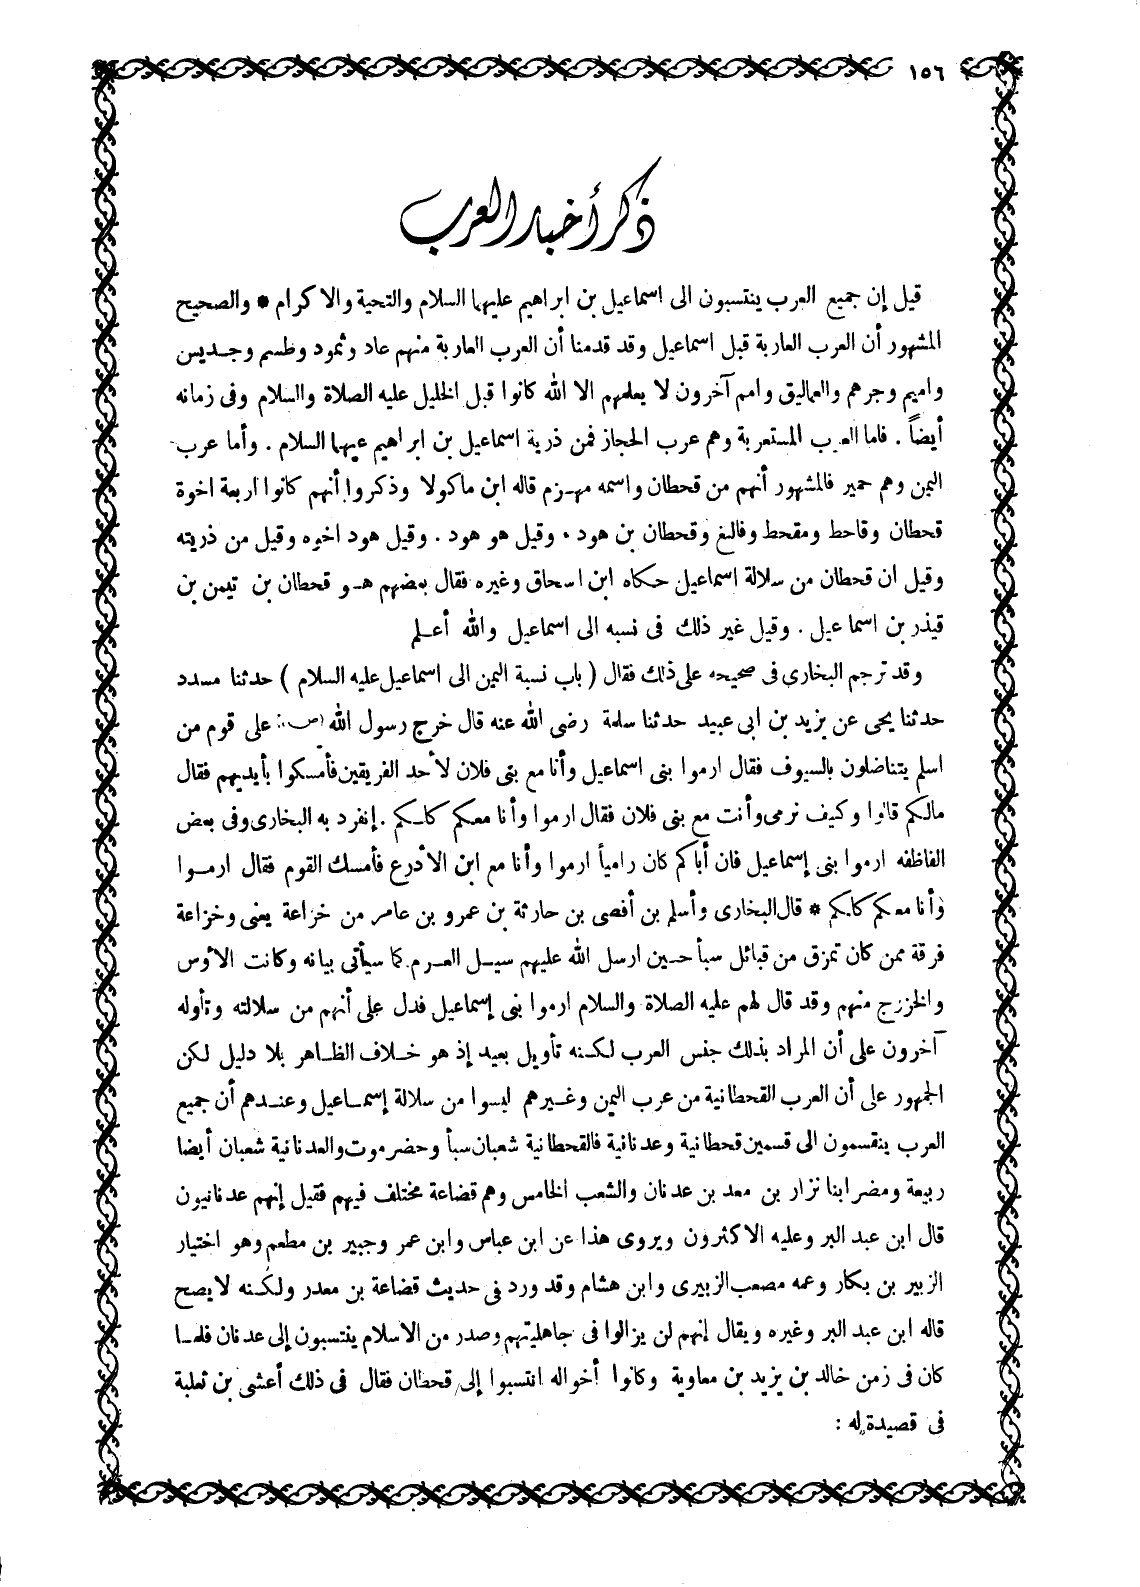 ١٥٦
ذكر أخبار العرب
قيل إن جميع العرب ينتسبون الى اسماعيل بن ابراهيم عليهما السلام والتحية والاكرام * والصحيح
المشهور أن العرب العاربة قبل اسماعيل وقد قدمنا أن العرب العاربة منهم عاد وثمود وطسم وجديس
واميم وجرهم والعماليق وامم آخرون لا يعلمهم الا الله كانوا قبل الخليل عليه الصلاة والسلام وفى زمانه
أيضاً . فاما العرب المستعربة وهم عرب الحجاز فمن ذرية اسماعيل بن ابراهيم عيهما السلام . وأما عرب
اليمن وهم حمير فالمشهور أنهم من قحطان واسمه مهزم قاله ابن ماكولا وذكروا أنهم كانوا اربعة اخوة
قحطان وقاحط ومقحط وفالغ وقحطان بن هود . وقيل هو هود . وقيل هود اخوه وقيل من ذريته
وقيل ان قحطان من سلالة اسماعيل حكاه ابن اسحاق وغيره فقال بعضهم هو قحطان بن تيمن بن
قيذر بن اسماعيل . وقيل غير ذلك فى نسبه الى اسماعيل والله أعلم
وقد ترجم البخارى فى صحيحه على ذلك فقال ( باب نسبة اليمن الى اسماعيل عليه السلام ) حدثنا مسدد
حدثنا يحى عن يزيد بن ابى عبيد حدثنا سلمة رضى الله عنه قال خرج رسول الله (ص) على قوم من
اسلم يتناضلون بالسيوف فقال ارموا بنى اسماعيل وأنا مع بنى فلان لأحد الفريقين فأمسكوا بأيديهم فقال
مالكم قالوا وكيف نرمى وأنت مع بنى فلان فقال ارموا وأنا معكم كلكم . إنفرد به البخارى وفى بعض
الفاظفه ارموا بنى إسماعيل فان أباكم كان رامياً ارموا وأنا مع ابن الأدرع فأمسك القوم فقال ارموا
وأنا معكم كلكم * قال البخارى وأسلم بن أفصى بن حارثة بن عمرو بن عامر من خزاعة يعنى وخزاعة
فرقة ممن كان تمزق من قبائل سبأ حين ارسل الله عليهم سيل العرم كما سيأتى بيانه وكانت الأوس
والخزرج منهم وقد قال لهم عليه الصلاة والسلام ارموا بنى إسماعيل فدل على أنهم من سلالته وتأوله
آخرون على أن المراد بذلك جنس العرب لكنه تأويل بعيد إذ هو خلاف الظاهر بلا دليل لكن
الجمهور على أن العرب القحطانية من عرب اليمن وغيرهم ليسوا من سلالة إسماعيل وعندهم أن جميع
العرب ينقسمون الى قسمين قحطانية وعدنانية فالقحطانية شعبان سبأ وحضرموت والعدنانية شعبان أيضا
ربيعة ومضر ابنا نزار بن معد بن عدنان والشعب الخامس وهم قضاعة مختلف فيهم فقيل إنهم عدنانيون
قال ابن عبد البر وعليه الاكثرون ويروى هذا عن ابن عباس وابن عمر وجبير بن مطعم وهو اختيار
الزبير بن بكار وعمه مصعب الزبيرى وابن هشام وقد ورد فى حديث قضاعة بن معدر ولكنه لا يصح
قاله ابن عبد البر وغيره ويقال إنهم لن يزالوا فى جاهليتهم وصدر من الاسلام ينتسبون إلى عدنان فلما
كان فى زمن خالد بن يزيد بن معاوية وكانوا أخواله انتسبوا إلى قحطان فقال فى ذلك أعشى بن ثعلبة
فى قصيدة له :